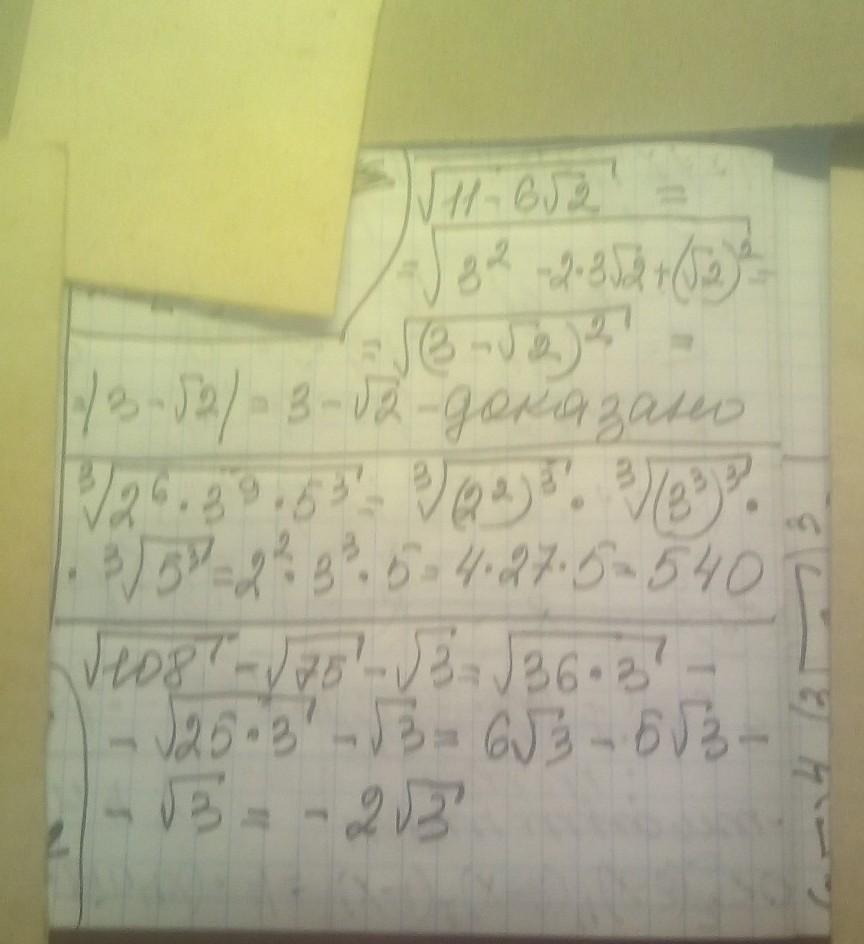 √11 - 6√2 =
= √3² - 2·3√2 + (√2)² =
= √(3 - √2)² =
= |3 - √2| = 3 - √2 - доказано
³√2⁶ · 3⁹ · 5³ = ³√(2²)³ · ³√(3³)³ ·
· ³√5³ = 2² · 3³ · 5 = 4·27·5 = 540
√108 - √75 - √3 = √36·3 -
- √25·3 - √3 = 6√3 - 5√3 -
- √3 = - 2√3